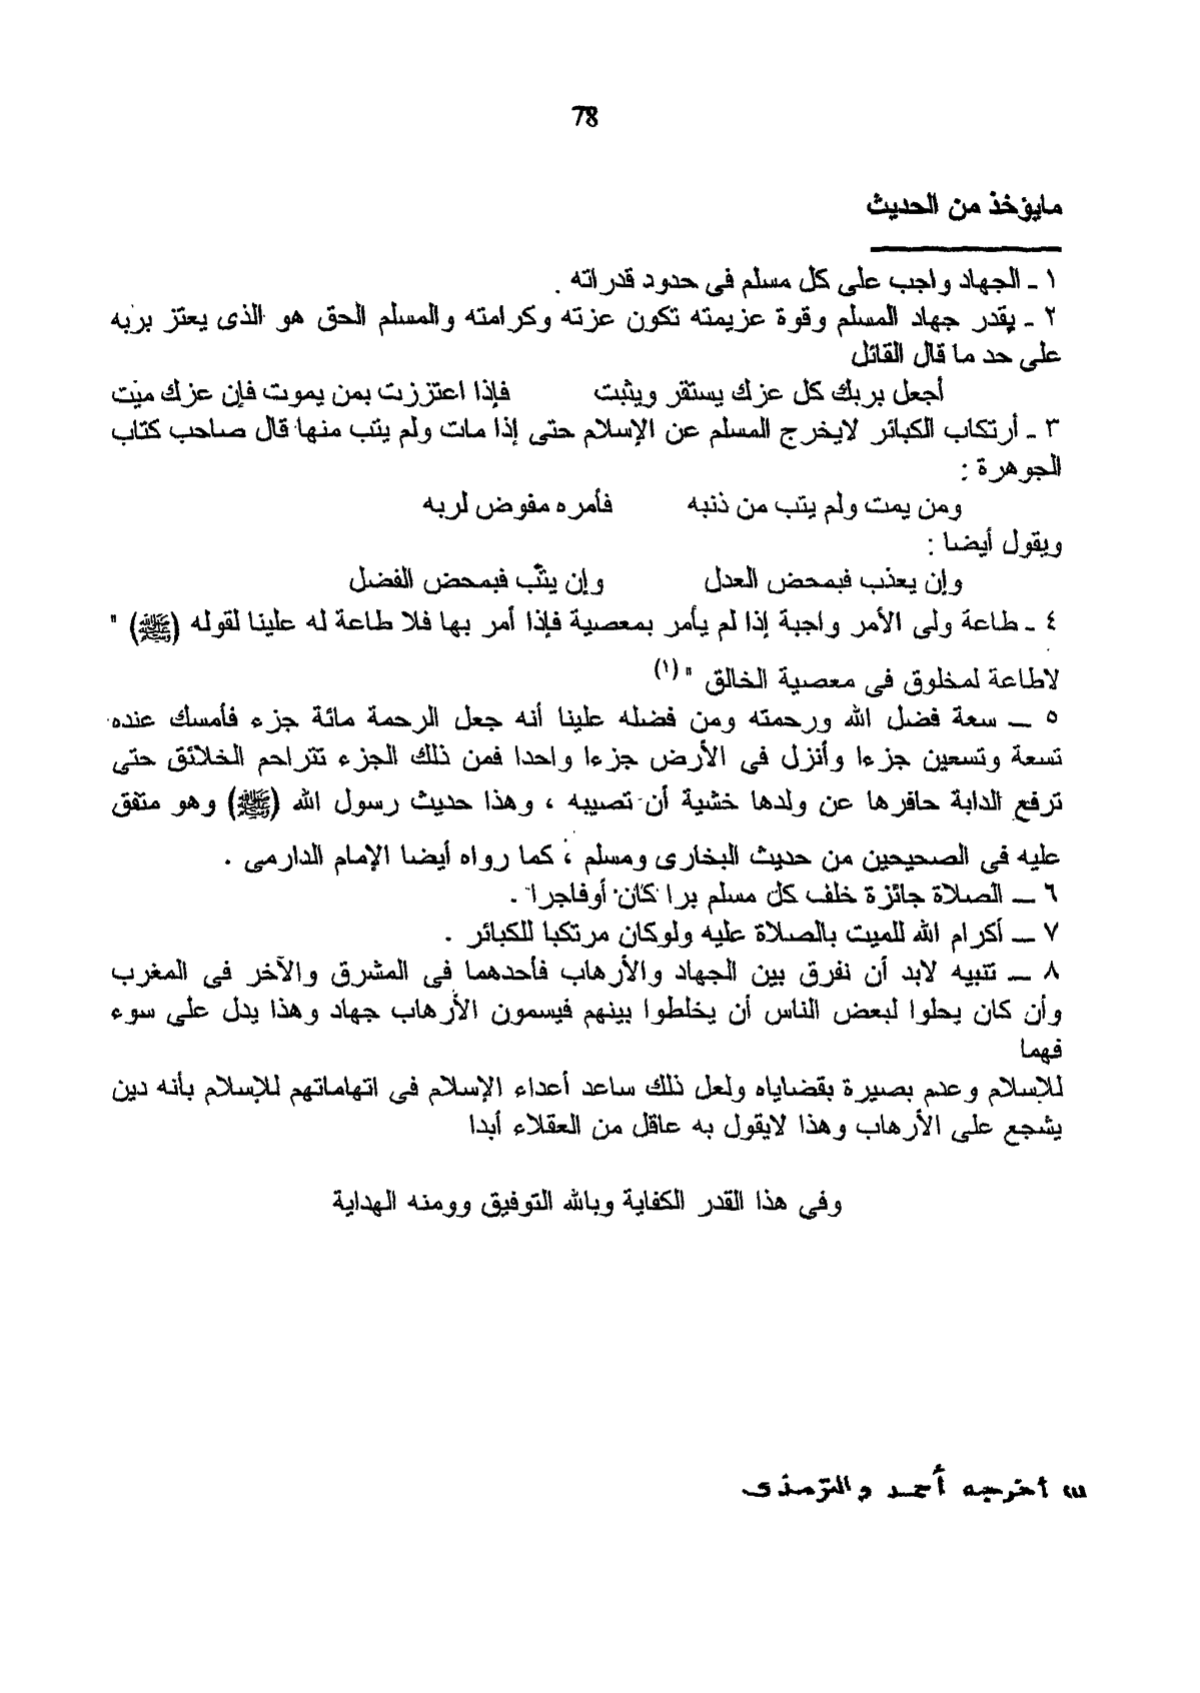 78
مايؤخذ من الحديث
١ ـ الجهاد واجب على كل مسلم فى حدود قدراته .
٢ ـ يقدر جهاد المسلم وقوة عزيمته تكون عزته وكرامته والمسلم الحق هو الذى يعتز بربه
على حد ما قال القائل
أجعل بربك كل عزك يستقر ويثبت فإذا اعتززت بمن يموت فإن عزك ميت
٣ ـ أرتكاب الكبائر لايخرج المسلم عن الإسلام حتى إذا مات ولم يتب منها قال صاحب كتاب
الجوهرة :
ومن يمت ولم يتب من ذنبه فأمره مفوض لربه
ويقول أيضا :
وإن يعذب فبمحض العدل وإن يثب فبمحض الفضل
٤ ـ طاعة ولى الأمر واجبة إذا لم يأمر بمعصية فإذا أمر بها فلا طاعة له علينا لقوله (ﷺ) "
لاطاعة لمخلوق فى معصية الخالق " (١)
٥ ــ سعة فضل الله ورحمته ومن فضله علينا أنه جعل الرحمة مائة جزء فأمسك عنده
تسعة وتسعين جزءا وأنزل فى الأرض جزءا واحدا فمن ذلك الجزء تتراحم الخلائق حتى
ترفع الدابة حافرها عن ولدها خشية أن تصيبه ، وهذا حديث رسول الله (ﷺ) وهو متفق
عليه فى الصحيحين من حديث البخارى ومسلم ، كما رواه أيضا الإمام الدارمى .
٦ ــ الصلاة جائزة خلف كل مسلم برا كان أوفاجرا .
٧ ــ أكرام الله للميت بالصلاة عليه ولوكان مرتكبا للكبائر .
٨ ــ تنبيه لابد أن نفرق بين الجهاد والأرهاب فأحدهما فى المشرق والآخر فى المغرب
وأن كان يحلوا لبعض الناس أن يخلطوا بينهم فيسمون الأرهاب جهاد وهذا يدل على سوء
فهما
للإسلام وعدم بصيرة بقضاياه ولعل ذلك ساعد أعداء الإسلام فى اتهاماتهم للإسلام بأنه دين
يشجع على الأرهاب وهذا لايقول به عاقل من العقلاء أبدا
وفى هذا القدر الكفاية وبالله التوفيق وومنه الهداية
(١) أخرجه أحمد والترمذى